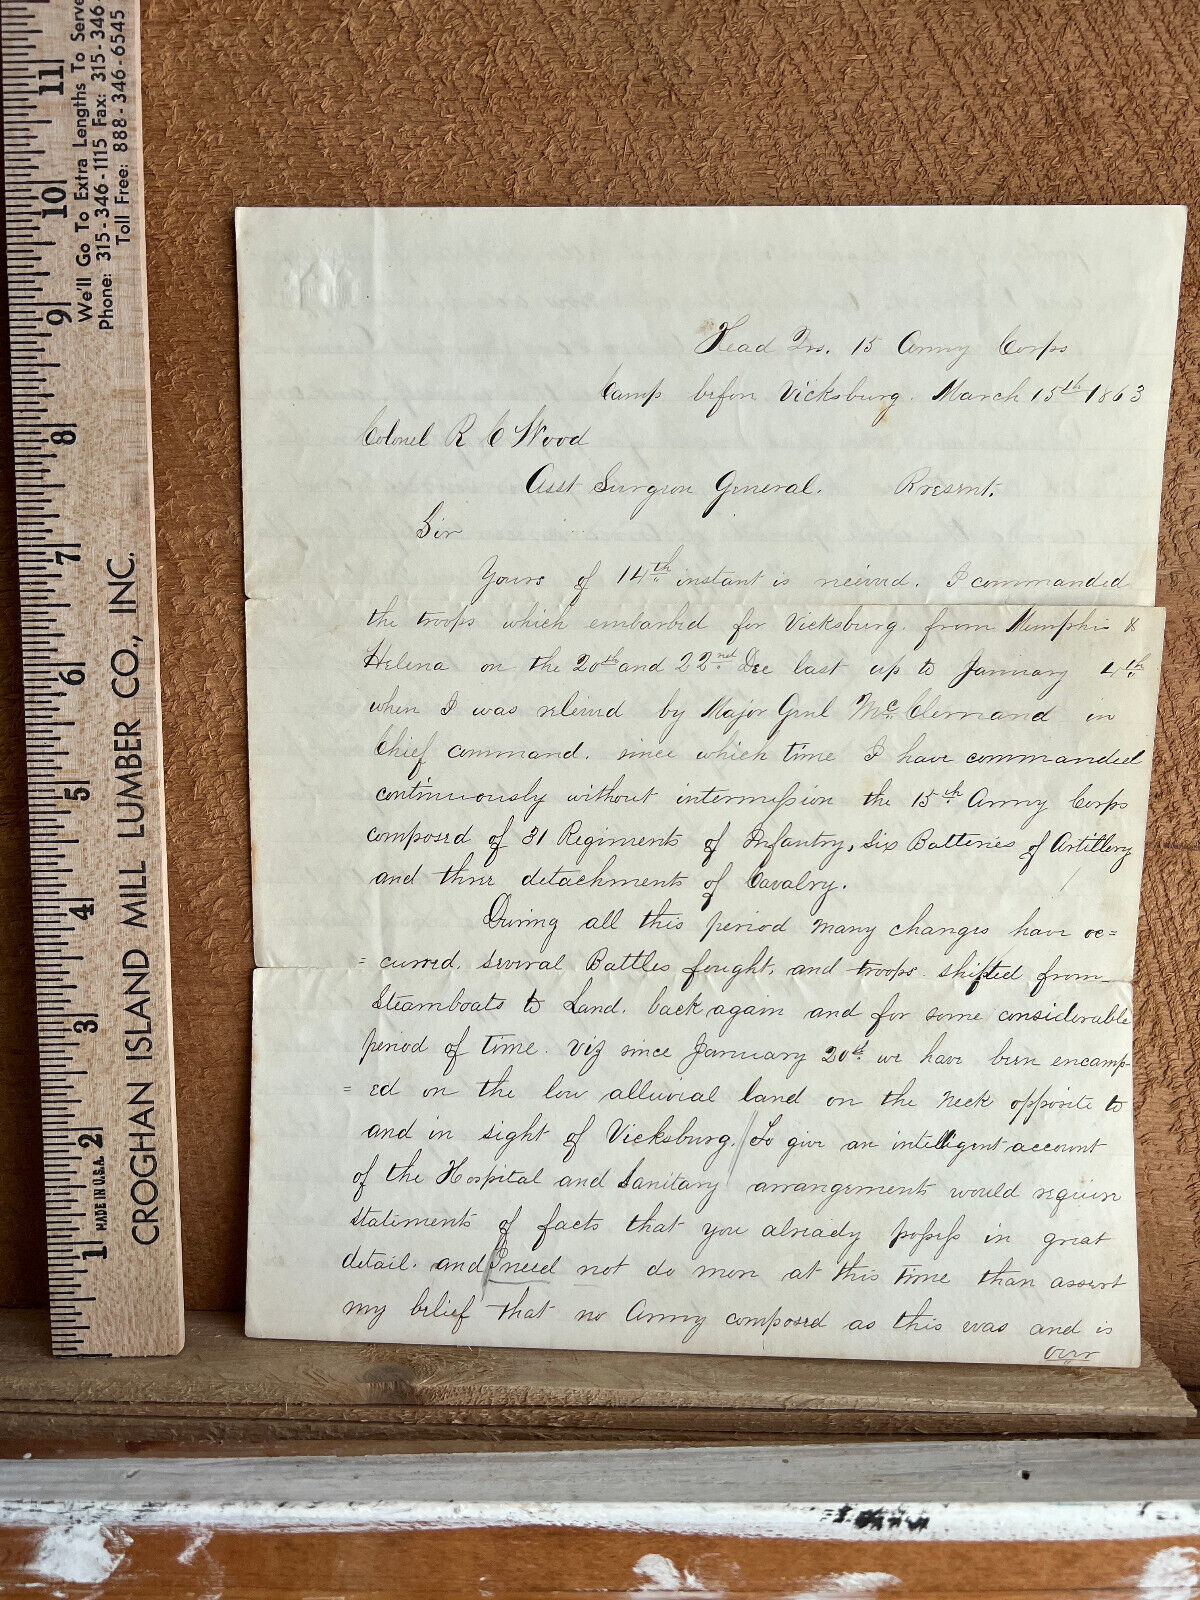 11
10
9
8
7
6
5
4
3
2
1
We'll Go To Extra Lengths To Serve
Phone: 315-346-1115 Fax: 315-346-
Toll Free: 888-346-6545
CROGHAN ISLAND MILL LUMBER CO., INC.
MADE IN U.S.A.
Head Qrs. 15 Army Corps
Camp before Vicksburg. March 15th 1863
Colonel R C Wood
Asst Surgeon General. Present.
Sir
Yours of 14th instant is received. I commanded
the troops which embarked for Vicksburg. from Memphis &
Helena on the 20th and 22nd Dec last up to January 4th
when I was relieved by Major Genl McClernand in
Chief command. since which time I have commanded
continuously without intermission the 15th Army Corps
composed of 31 Regiments of Infantry, Six Batteries of Artillery
and three detachments of Cavalry.
During all this period many changes have oc=
=curred. Several Battles fought, and troops shifted from
Steamboats to Land. back again and for some considerable
period of time. viz since January 20th we have been encamp-
=ed on the low alluvial land on the neck opposite to
and in sight of Vicksburg. To give an intelligent account
of the Hospital and Sanitary arrangements would require
statements of facts that you already possess in great
detail. and I need not do more at this time than assert
my belief that no Army composed as this was and is
over